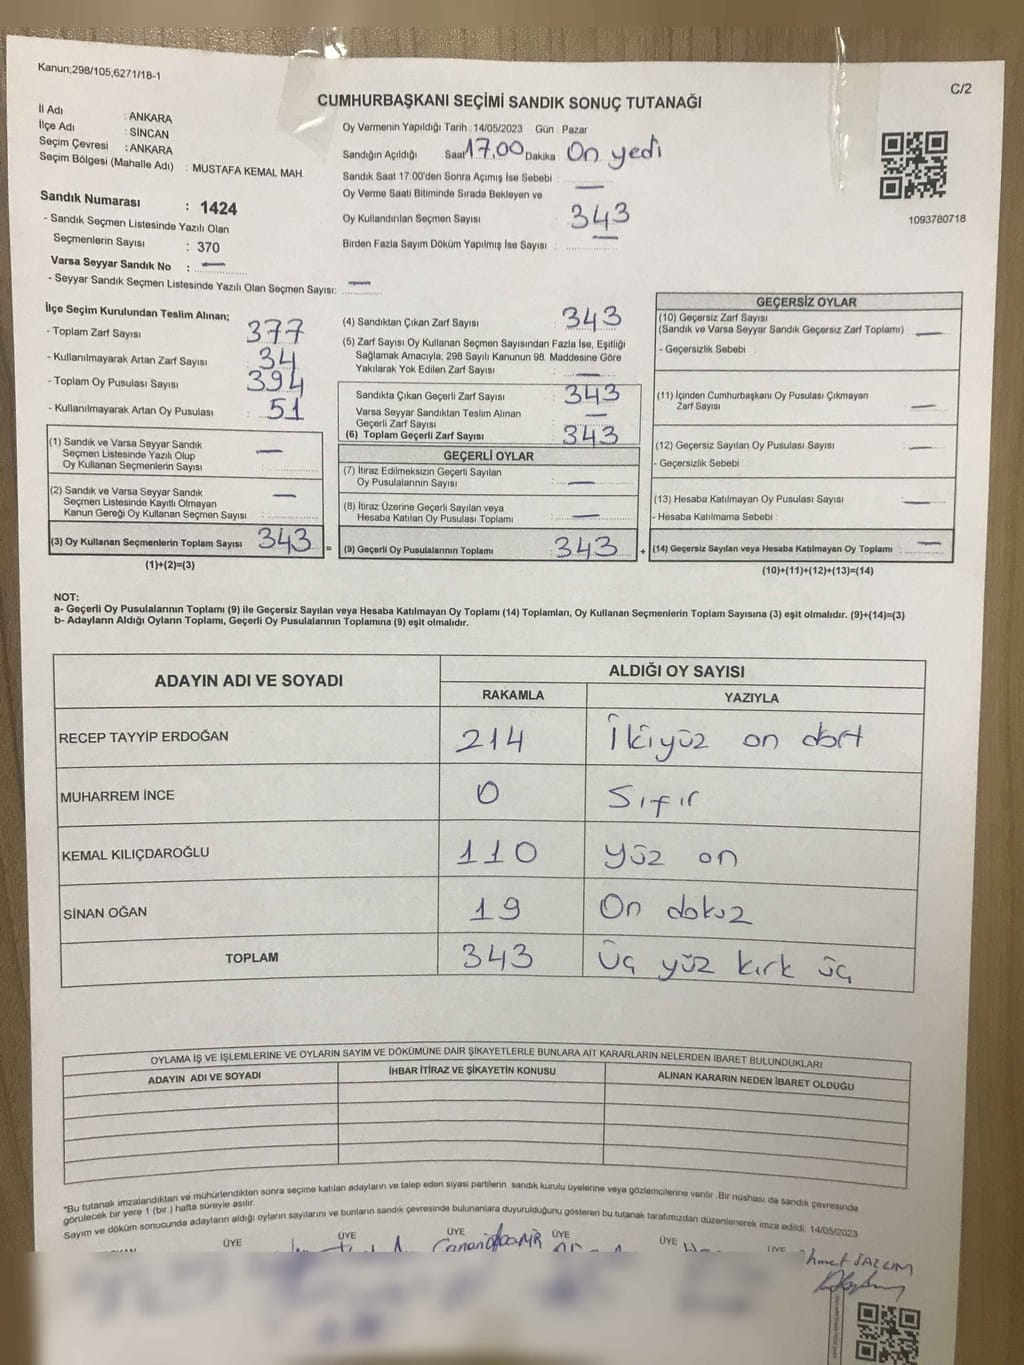 Kanun;298/105;6271/18-1
C/2
CUMHURBAŞKANI SEÇİMİ SANDIK SONUÇ TUTANAĞI
İl Adı : ANKARA
İlçe Adı : SİNCAN
Seçim Çevresi : ANKARA
Seçim Bölgesi (Mahalle Adı) : MUSTAFA KEMAL MAH.
Sandık Numarası : 1424
- Sandık Seçmen Listesinde Yazılı Olan
Seçmenlerin Sayısı : 370
Varsa Seyyar Sandık No : —
- Seyyar Sandık Seçmen Listesinde Yazılı Olan Seçmen Sayısı: —
Oy Vermenin Yapıldığı Tarih : 14/05/2023 Gün : Pazar
Sandığın Açıldığı Saat 17.00 Dakika On yedi
Sandık Saat 17:00'den Sonra Açımış İse Sebebi : —
Oy Verme Saati Bitiminde Sırada Bekleyen ve
Oy Kullandırılan Seçmen Sayısı : 343
Birden Fazla Sayım Döküm Yapılmış İse Sayısı : —
1093780718
İlçe Seçim Kurulundan Teslim Alınan;
- Toplam Zarf Sayısı : 377
- Kullanılmayarak Artan Zarf Sayısı : 34
- Toplam Oy Pusulası Sayısı : 394
- Kullanılmayarak Artan Oy Pusulası : 51
(1) Sandık ve Varsa Seyyar Sandık
Seçmen Listesinde Yazılı Olup
Oy Kullanan Seçmenlerin Sayısı : —
(2) Sandık ve Varsa Seyyar Sandık
Seçmen Listesinde Kayıtlı Olmayan
Kanun Gereği Oy Kullanan Seçmen Sayısı : —
(3) Oy Kullanan Seçmenlerin Toplam Sayısı : 343
(1)+(2)=(3)
=
(4) Sandıktan Çıkan Zarf Sayısı : 343
(5) Zarf Sayısı Oy Kullanan Seçmen Sayısından Fazla İse, Eşitliği
Sağlamak Amacıyla; 298 Sayılı Kanunun 98. Maddesine Göre
Yakılarak Yok Edilen Zarf Sayısı : —
Sandıkta Çıkan Geçerli Zarf Sayısı : 343
Varsa Seyyar Sandıktan Teslim Alınan
Geçerli Zarf Sayısı : —
(6) Toplam Geçerli Zarf Sayısı : 343
GEÇERLİ OYLAR
(7) İtiraz Edilmeksizin Geçerli Sayılan
Oy Pusulalarının Sayısı : —
(8) İtiraz Üzerine Geçerli Sayılan veya
Hesaba Katılan Oy Pusulası Toplamı : —
(9) Geçerli Oy Pusulalarının Toplamı : 343
+
GEÇERSİZ OYLAR
(10) Geçersiz Zarf Sayısı
(Sandık ve Varsa Seyyar Sandık Geçersiz Zarf Toplamı) : —
- Geçersizlik Sebebi :
(11) İçinden Cumhurbaşkanı Oy Pusulası Çıkmayan
Zarf Sayısı : —
(12) Geçersiz Sayılan Oy Pusulası Sayısı : —
- Geçersizlik Sebebi :
(13) Hesaba Katılmayan Oy Pusulası Sayısı : —
- Hesaba Katılmama Sebebi :
(14) Geçersiz Sayılan veya Hesaba Katılmayan Oy Toplamı : —
(10)+(11)+(12)+(13)=(14)
NOT:
a- Geçerli Oy Pusulalarının Toplamı (9) ile Geçersiz Sayılan veya Hesaba Katılmayan Oy Toplamı (14) Toplamları, Oy Kullanan Seçmenlerin Toplam Sayısına (3) eşit olmalıdır. (9)+(14)=(3)
b- Adayların Aldığı Oyların Toplamı, Geçerli Oy Pusulalarının Toplamına (9) eşit olmalıdır.
ADAYIN ADI VE SOYADI
ALDIĞI OY SAYISI
RAKAMLA YAZIYLA
RECEP TAYYİP ERDOĞAN 214 İkiyüz on dört
MUHARREM İNCE 0 Sıfır
KEMAL KILIÇDAROĞLU 110 yüz on
SİNAN OĞAN 19 On dokuz
TOPLAM 343 Üç yüz kırk üç
OYLAMA İŞ VE İŞLEMLERİNE VE OYLARIN SAYIM VE DÖKÜMÜNE DAİR ŞİKAYETLERLE BUNLARA AİT KARARLARIN NELERDEN İBARET BULUNDUKLARI
ADAYIN ADI VE SOYADI İHBAR İTİRAZ VE ŞİKAYETİN KONUSU ALINAN KARARIN NEDEN İBARET OLDUĞU
"Bu tutanak imzalandıktan ve mühürlendikten sonra seçime katılan adayların ve talep eden siyasi partilerin sandık kurulu üyelerine veya gözlemcilerine verilir. Bir nüshası da sandık çevresinde
görülecek bir yere 1 (bir) hafta süreyle asılır.
Sayım ve döküm sonucunda adayların aldığı oyların sayılarını ve bunların sandık çevresinde bulunanlara duyurulduğunu gösteren bu tutanak tarafımızdan düzenlenerek imza edildi. 14/05/2023
ÜYE ÜYE ÜYE ÜYE ÜYE ÜYE